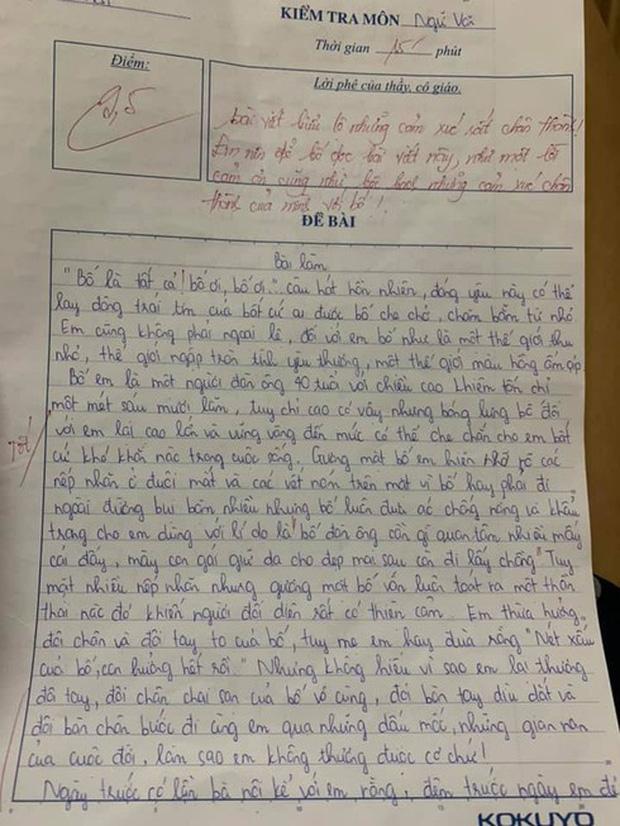 KIỂM TRA MÔN Ngữ Văn
Thời gian 15' phút
Điểm:
Lời phê của thầy, cô giáo.
bài viết biểu lộ những cảm xúc rất chân thành!
Em nên để bố đọc bài viết này, như một lời
cảm ơn cũng như những cảm xúc chân
thành của mình với bố!
ĐỀ BÀI
Bài làm
"Bố là tất cả! bố ơi, bố ơi.." câu hát hồn nhiên, đáng yêu này có thể
lay động trái tim của bất cứ ai được bố che chở, chăm bẵm từ nhỏ
Em cũng không phải ngoại lệ, đối với em bố như là một thế giới thu
nhỏ, thế giới ngập tràn tình yêu thương, một thế giới màu hồng ấm áp.
Bố em là một người đàn ông 40 tuổi với chiều cao khiêm tốn chỉ
một mét sáu mươi lăm, tuy chỉ cao có vậy nhưng bóng lưng bố đối
với em lại cao lớn và vững vàng đến mức có thể che chắn cho em bất
tốt
cứ khó khăn nào trong cuộc sống. Gương mặt bố em hiện rõ các
nếp nhăn ở đuôi mắt và các vết nám trên mặt vì bố hay phải đi
ngoài đường bụi bặm nhiều nhưng bố luôn đưa áo chống nắng và khẩu
trang cho em dùng với lí do là "bố đàn ông cần gì quan tâm nhiều mấy
cái đấy, mày con gái giữ da cho đẹp mai sau còn đi lấy chồng" Tuy
mặt nhiều nếp nhăn nhưng gương mặt bố vẫn luôn toát ra một thần
thái nào đó khiến người đối diện rất có thiện cảm. Em thừa hưởng
đôi chân và đôi tay to của bố, tuy mẹ em hay đùa rằng "Nét xấu
của bố, con hưởng hết rồi." Nhưng không hiểu vì sao em lại thương
đôi tay, đôi chân chai sạn của bố vô cùng, đôi bàn tay dìu dắt và
đôi bàn chân bước đi cùng em qua những dấu mốc, những gian nan
của cuộc đời, làm sao em không thương được cơ chứ!
Ngày trước có lần bà nội kể với em rằng, đêm trước ngày em đẻ
KOKUYO